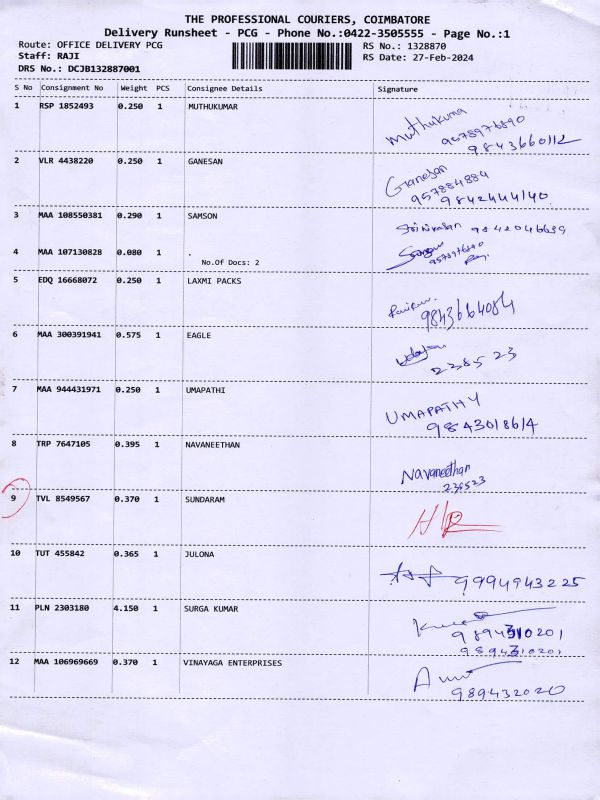 THE PROFESSIONAL COURIERS, COIMBATORE
Delivery Runsheet - PCG - Phone No.:0422-3505555 - Page No.:1
Route: OFFICE DELIVERY PCG RS No.: 1328870
Staff: RAJI RS Date: 27-Feb-2024
DRS No.: DCJB132887001
S No Consignment No Weight PCS Consignee Details Signature
1 RSP 1852493 0.250 1 MUTHUKUMAR Muthukuma
9578976890
9843660112
2 VLR 4438220 0.250 1 GANESAN Ganesan
957884884
9842444140.
3 MAA 108550381 0.290 1 SAMSON Srinivasan 9842046639
4 MAA 107130828 0.080 1 .
9578976890
No.Of Docs: 2
5 EDQ 16668072 0.250 1 LAXMI PACKS
9843664084
6 MAA 300391941 0.575 1 EAGLE
238523
7 MAA 944431971 0.250 1 UMAPATHI UMAPATHY
9843018614
8 TRP 7647105 0.395 1 NAVANEETHAN Navaneethan
238523
9 TVL 8549567 0.370 1 SUNDARAM
10 TUT 455842 0.365 1 JULONA 9994943225
11 PLN 2303180 4.150 1 SURGA KUMAR
9894310201
9894310201
12 MAA 106969669 0.370 1 VINAYAGA ENTERPRISES
989432020